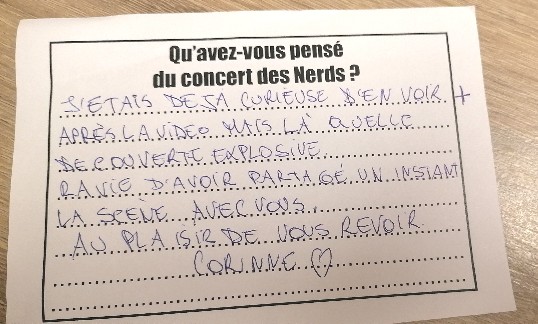 Qu'avez-vous pensé
du concert des Nerds ?
J'ETAIS DEJA CURIEUSE D'EN VOIR +
APRÈS LA VIDEO MAIS LÀ QUELLE
DECOUVERTE EXPLOSIVE.
RAVIE D'AVOIR PARTAGÉ UN INSTANT
LA SCENE AVEC VOUS.
AU PLAISIR DE VOUS REVOIR
CORINNE ♡